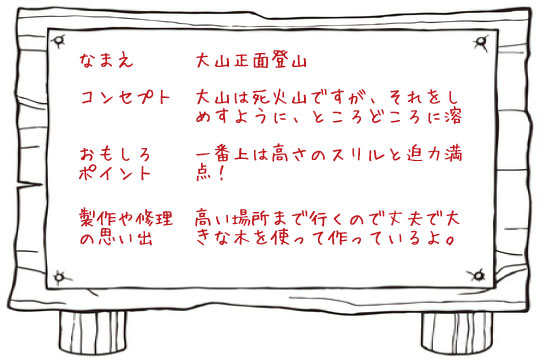 なまえ 大山正面登山
コンセプト 大山は死火山ですが、それをし
めすように、ところどころに溶
おもしろ 一番上は高さのスリルと迫力満
ポイント 点！
製作や修理 高い場所まで行くので丈夫で大
の思い出 きな木を使って作っているよ。